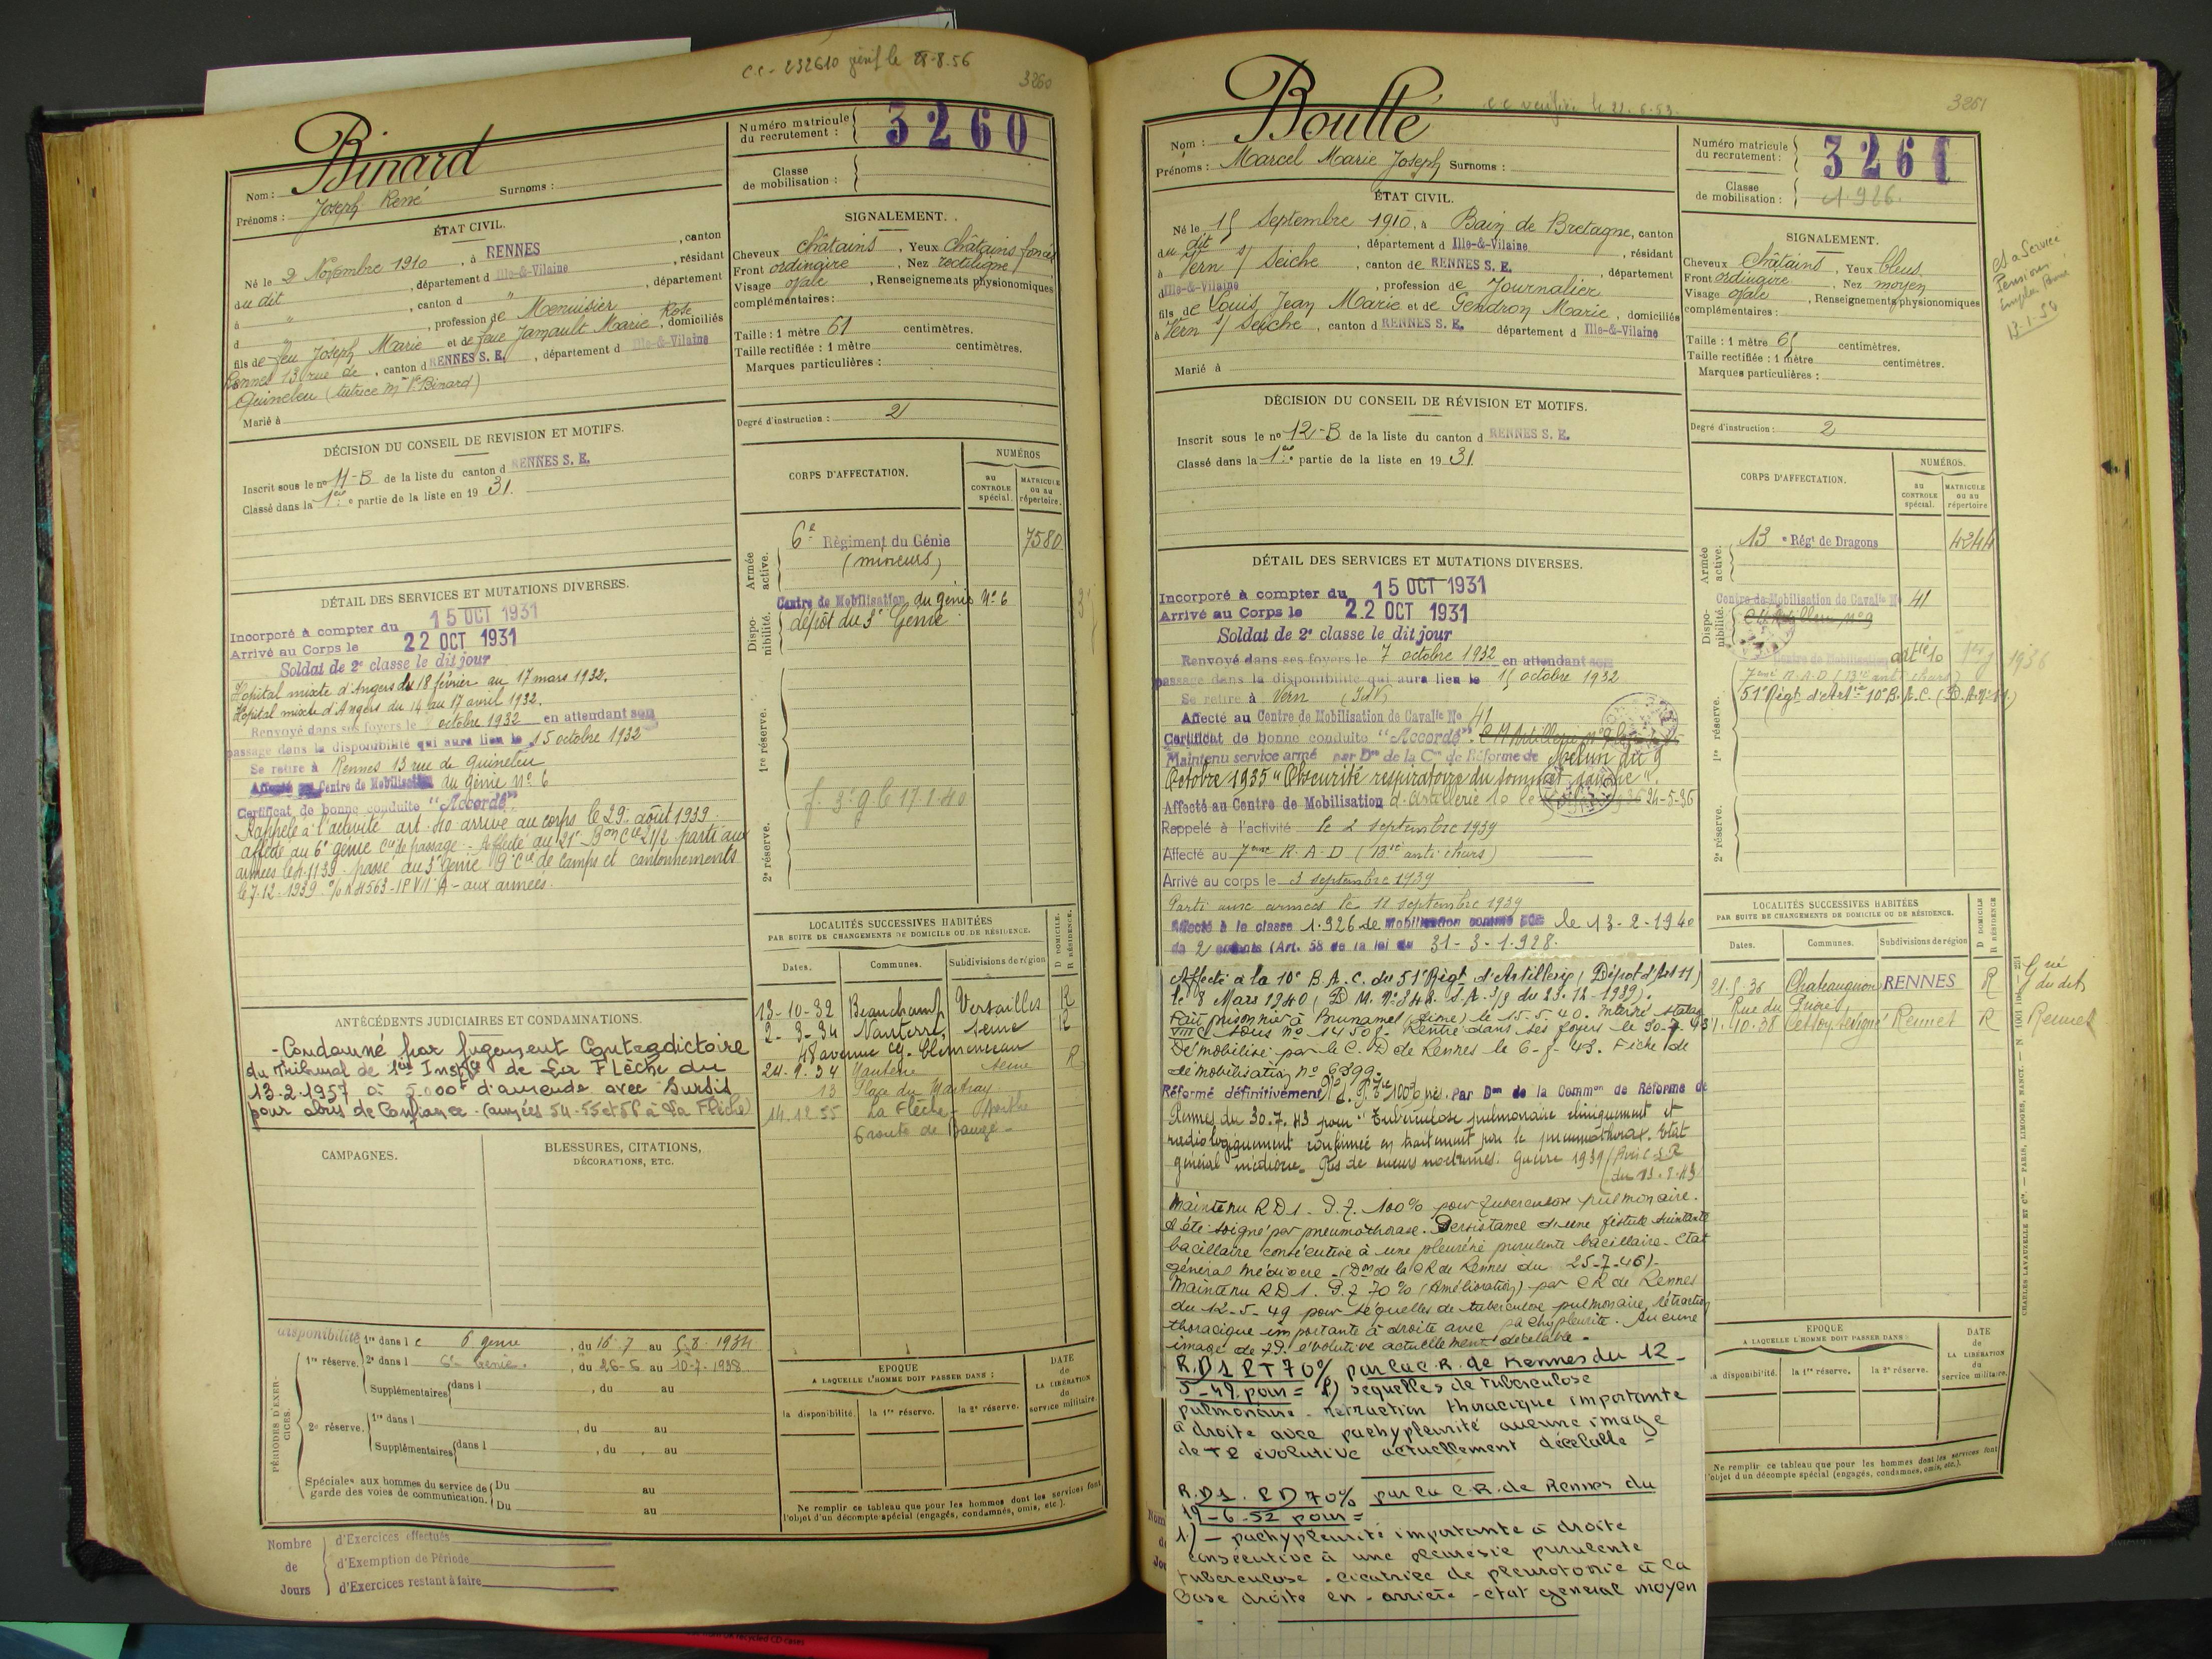 C.C. - 232610 le 28-8.56
3260
Binard
Nom :
Prénoms : Joseph René Surnoms :
Numéro matricule du recrutement : 3260
Classe de mobilisation :
ÉTAT CIVIL.
Né le 2 Novembre 1910, à RENNES, canton
du dit, département d Ille-&-Vilaine, résidant
à ", canton d ", département
d ", profession de Menuisier
fils de feu Joseph Marie et de feue Jamault Marie Rose, domiciliés
Rennes 13 rue de, canton d RENNES S. E., département d Ille-&-Vilaine
Quineleu (tutrice Mme Vve Binard)
Marié à
SIGNALEMENT.
Cheveux châtains, Yeux châtains foncés
Front ordinaire, Nez rectiligne
Visage ovale, Renseignements physionomiques
complémentaires :
Taille : 1 mètre 61 centimètres.
Taille rectifiée : 1 mètre centimètres.
Marques particulières :
Degré d'instruction : 2
DÉCISION DU CONSEIL DE REVISION ET MOTIFS.
Inscrit sous le nº 11-B de la liste du canton d RENNES S. E.
Classé dans la 1ère partie de la liste en 1931.
CORPS D'AFFECTATION.
NUMÉROS
AU CONTROLE spécial.
MATRICULE ou au répertoire.
Armée active.
6e Régiment du Génie 7580
(mineurs)
Disponibilité.
Centre de Mobilisation du génie Nº 6
dépôt du 3e Génie
1re réserve.
f. 3e g le 17.1.40
2e réserve.
DÉTAIL DES SERVICES ET MUTATIONS DIVERSES.
Incorporé à compter du 15 OCT 1931
Arrivé au Corps le 22 OCT 1931
Soldat de 2e classe le dit jour
Hôpital mixte d'Angers du 18 février au 17 mars 1932.
Hôpital mixte d'Angers du 14 au 17 avril 1932.
Renvoyé dans ses foyers le octobre 1932 en attendant son
passage dans la disponibilité qui aura lieu le 15 octobre 1932
Se retire à Rennes 13 rue de Quineleu
Affecté au Centre de Mobilisation du génie Nº 6
Certificat de bonne conduite "Accordé"
Rappelé à l'activité art. 40 arrivé au corps le 29 août 1939
affecté au 6e génie Cie de passage - Affecté au 21e Bon Cie 21/2 parti aux
armées le 4.11 39. passé au 3e génie 9e Cie de camps et cantonnements
le 7.12.1939. % A 4563-1P VII A - aux armées.
LOCALITÉS SUCCESSIVES HABITÉES
PAR SUITE DE CHANGEMENTS DE DOMICILE OU DE RÉSIDENCE.
Dates. Communes. Subdivisions de région D DOMICILE. R RÉSIDENCE.
13-10-32 Beauchamp Versailles R
2-3-34 Nanterre Seine R
48 avenue Clemenceau
24.9.34 Nanterre Seine R
13 Place du
14.12.55 La Flèche - Sarthe
6 route de Baugé -
ANTÉCÉDENTS JUDICIAIRES ET CONDAMNATIONS.
- Condamné par jugement Contradictoire
du Tribunal de 1ère Instce de La Flèche du
13.2.1957 à 5.000f d'amende avec Sursis
pour abus de Confiance - (années 54-55 et 56 à La Flèche)
CAMPAGNES.
BLESSURES, CITATIONS, DÉCORATIONS, ETC.
PÉRIODES D'EXERCICES.
disponibilité 1re dans le 6 génie, du 16-7 au 5.8.1934
1re réserve. 2e dans l 6e Génie, du 26-6 au 10-7-1938
Supplémentaires dans l, du au
2e réserve. 1re dans l, du au
Supplémentaires dans l, du au
Spéciales aux hommes du service de garde des voies de communication. Du au
Du au
EPOQUE
A LAQUELLE L'HOMME DOIT PASSER DANS :
la disponibilité. la 1re réserve. la 2e réserve.
DATE DE LA LIBÉRATION du service militaire
Ne remplir ce tableau que pour les hommes dont les services font
l'objet d'un décompte spécial (engagés, condamnés, omis, etc.).
Nombre de Jours
d'Exercices effectués
d'Exemption de Période
d'Exercices restant à faire
C.C vérifié le 22-6-53.
3261
Boutté
Nom :
Prénoms : Marcel Marie Joseph Surnoms :
Numéro matricule du recrutement : 3261
Classe de mobilisation : 1.926.
ÉTAT CIVIL.
Né le 15 Septembre 1910, à Bain de Bretagne, canton
du dit, département d Ille-&-Vilaine, résidant
à Vern s/ Seiche, canton de RENNES S. E., département
d Ille-&-Vilaine, profession de Journalier
fils de Louis Jean Marie et de Gendron Marie, domiciliés
à Vern s/ Seiche, canton d RENNES S. E. département d Ille-&-Vilaine
Marié à
SIGNALEMENT.
Cheveux Châtains, Yeux bleus
Front ordinaire, Nez moyen
Visage ovale, Renseignements physionomiques
complémentaires :
Taille : 1 mètre 65 centimètres.
Taille rectifiée : 1 mètre centimètres.
Marques particulières :
Degré d'instruction : 2
Service
Pensions
DÉCISION DU CONSEIL DE RÉVISION ET MOTIFS.
Inscrit sous le nº 12-B de la liste du canton d RENNES S. E.
Classé dans la 1ère partie de la liste en 1931.
CORPS D'AFFECTATION.
NUMÉROS.
AU CONTROLE spécial.
MATRICULE ou au répertoire
Armée active.
13e Régt de Dragons 4244
Disponibilité.
Centre de Mobilisation de Cavalie Nº 41
Centre de Mobilisation artie 10 1936
1re réserve.
7ème R.A.D (13e anti chars)
51e Régt d'Artie 10e B.A.C. (D.A. nº 11)
2e réserve.
DÉTAIL DES SERVICES ET MUTATIONS DIVERSES.
Incorporé à compter du 15 OCT 1931
Arrivé au Corps le 22 OCT 1931
Soldat de 2e classe le dit jour
Renvoyé dans ses foyers le 7 octobre 1932 en attendant son
passage dans la disponibilité qui aura lieu le 15 octobre 1932
Se retire à Vern (I&V)
Affecté au Centre de Mobilisation de Cavalie Nº 41
Certificat de bonne conduite "Accordé".
Maintenu service armé par Don de la Con de Réforme de Melun du 9
Octobre 1935 "Obscurité respiratoire du sommet gauche".
Affecté au Centre de Mobilisation d'Artillerie 10 le 24-5-36
Rappelé à l'activité le 2 septembre 1939
Affecté au 7ème R.A.D (13e anti chars)
Arrivé au corps le 3 septembre 1939
Parti aux armées le 11 septembre 1939
Affecté à la classe 1.926 de mobilisation comme père le 13-2-1940
de 2 enfants (Art. 58 de la loi du 31-3-1.928.
Affecté à la 10e B.A.C. du 51e Régt d'Artillerie (Dépot d'Art 11)
le 8 Mars 1940 (D.M. Nº 348. S.A. 3/3 du 23.12-1939).
Fait prisonnier à Brunamel (Aisne) le 15-5.40. Interné Stalag
VIII C sous nº 14508. Rentré dans ses foyers le 30-
Démobilisé par le C.D de Rennes le 6-5-43. Fiche de
démobilisation nº 6399.
Réformé définitivement Nº 1. P. Tre 100% Par Don de la Common de Réforme de
Rennes du 30.7.43 pour "Tuberculose pulmonaire cliniquement et
radiologiquement confirmée en traitement par le pneumothorax. Etat
général médiocre. Pas de sueurs nocturnes. Guerre 1939
Maintenu RD1. P.T. 100% pour tuberculose pulmonaire.
a été soigné par pneumothorax. Persistance d'une fistule suintante
bacillaire consécutive à une pleurésie purulente bacillaire - Etat
général médiocre - (Don de la CR de Rennes du 25-7-46).
Maintenu RD1. P.T 70% (Amélioration) par CR de Rennes
du 12-5-49 pour séquelles de tuberculose pulmonaire, rétraction
thoracique importante à droite avec pachypleurite. Aucune
image de T.P. évolutive actuellement décelable -
R.D1 PT 70% par la C.R. de Rennes du 12-
5-49 pour = 1) séquelles de tuberculose
pulmonaire. Rétraction thoracique importante
à droite avec pachypleurite aucune image
de TP évolutive actuellement décelable =
R.D1. PD 70% par la C.R. de Rennes du
19-6-52 pour =
1) - pachypleurite importante à droite
consécutive à une pleurésie purulente
tuberculose. cicatrice de pleurotomie à la
base droite en arrière - état général moyen
LOCALITÉS SUCCESSIVES HABITÉES
PAR SUITE DE CHANGEMENTS DE DOMICILE OU DE RÉSIDENCE.
Dates. Communes. Subdivisions de région D DOMICILE R RÉSIDENCE
21.5.36 Chateaugiron RENNES R
Rue du Prieuré
1.10.38 Cesson Sévigné Rennes R
Rennes
EPOQUE
A LAQUELLE L'HOMME DOIT PASSER DANS
la disponibilité. la 1re réserve. la 2e réserve.
DATE DE LA LIBÉRATION du service militaire.
Ne remplir ce tableau que pour les hommes dont les services font
l'objet d'un décompte spécial (engagés, condamnés, omis, etc.).
CHARLES LAVAUZELLE ET Cie. — PARIS, LIMOGES, NANCY.